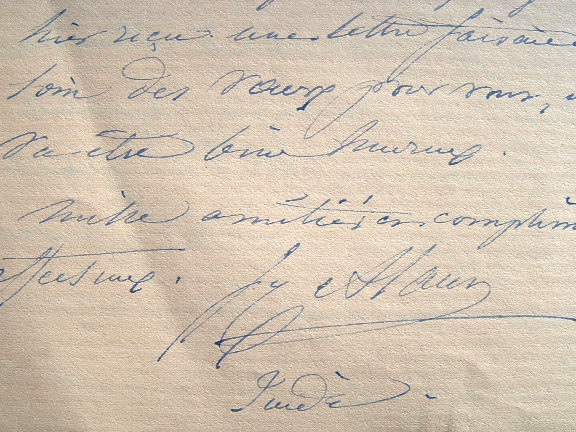 hier reçu une lettre faisant
loin des vœux pour vous,
va être bien heureux.
mille amitiés en complim
affectueux.